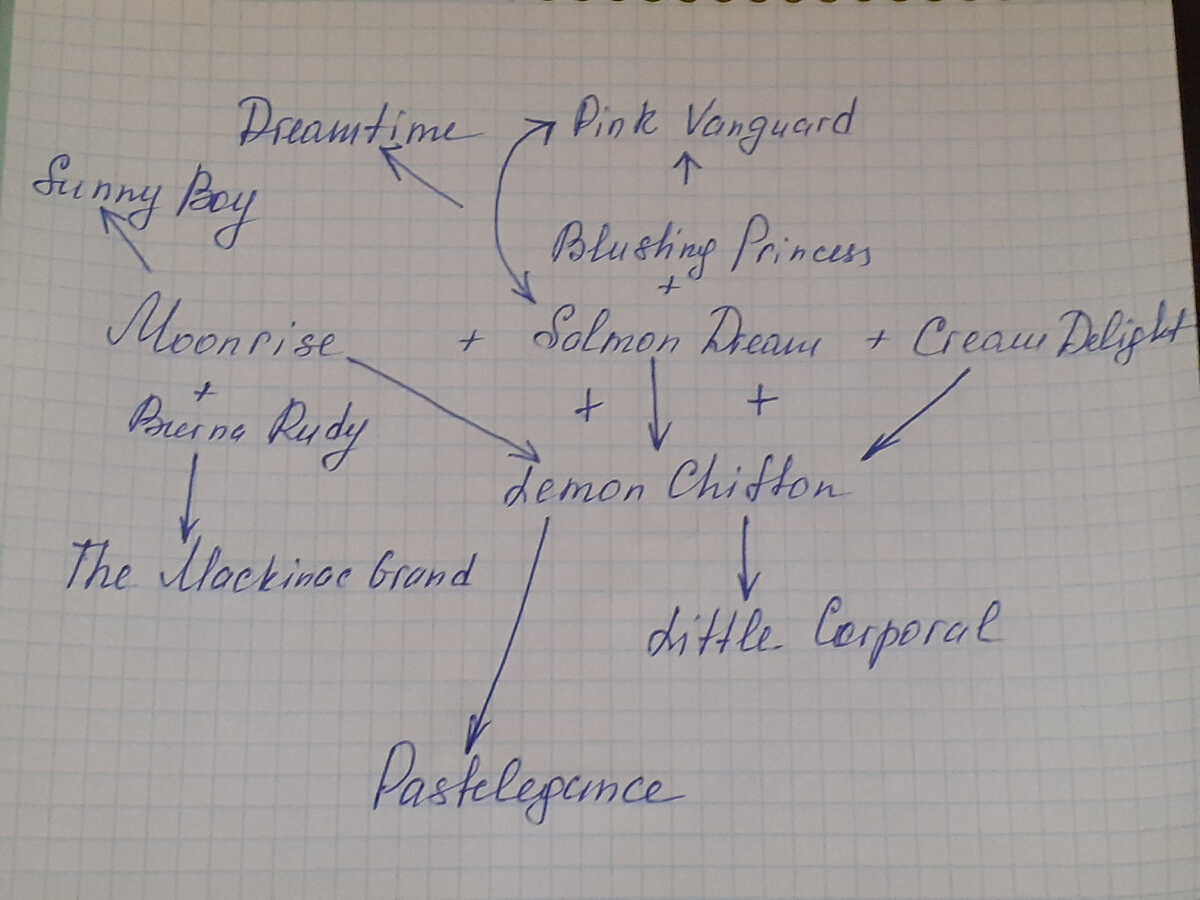 Dreamtime Pink Vanguard
Sunny Boy
Blushing Princess
+
Moonrise + Salmon Dream + Cream Delight
+ + +
Burna Rudy
Lemon Chiffon
The Mackinac Grand
Little Corporal
Pastelegance